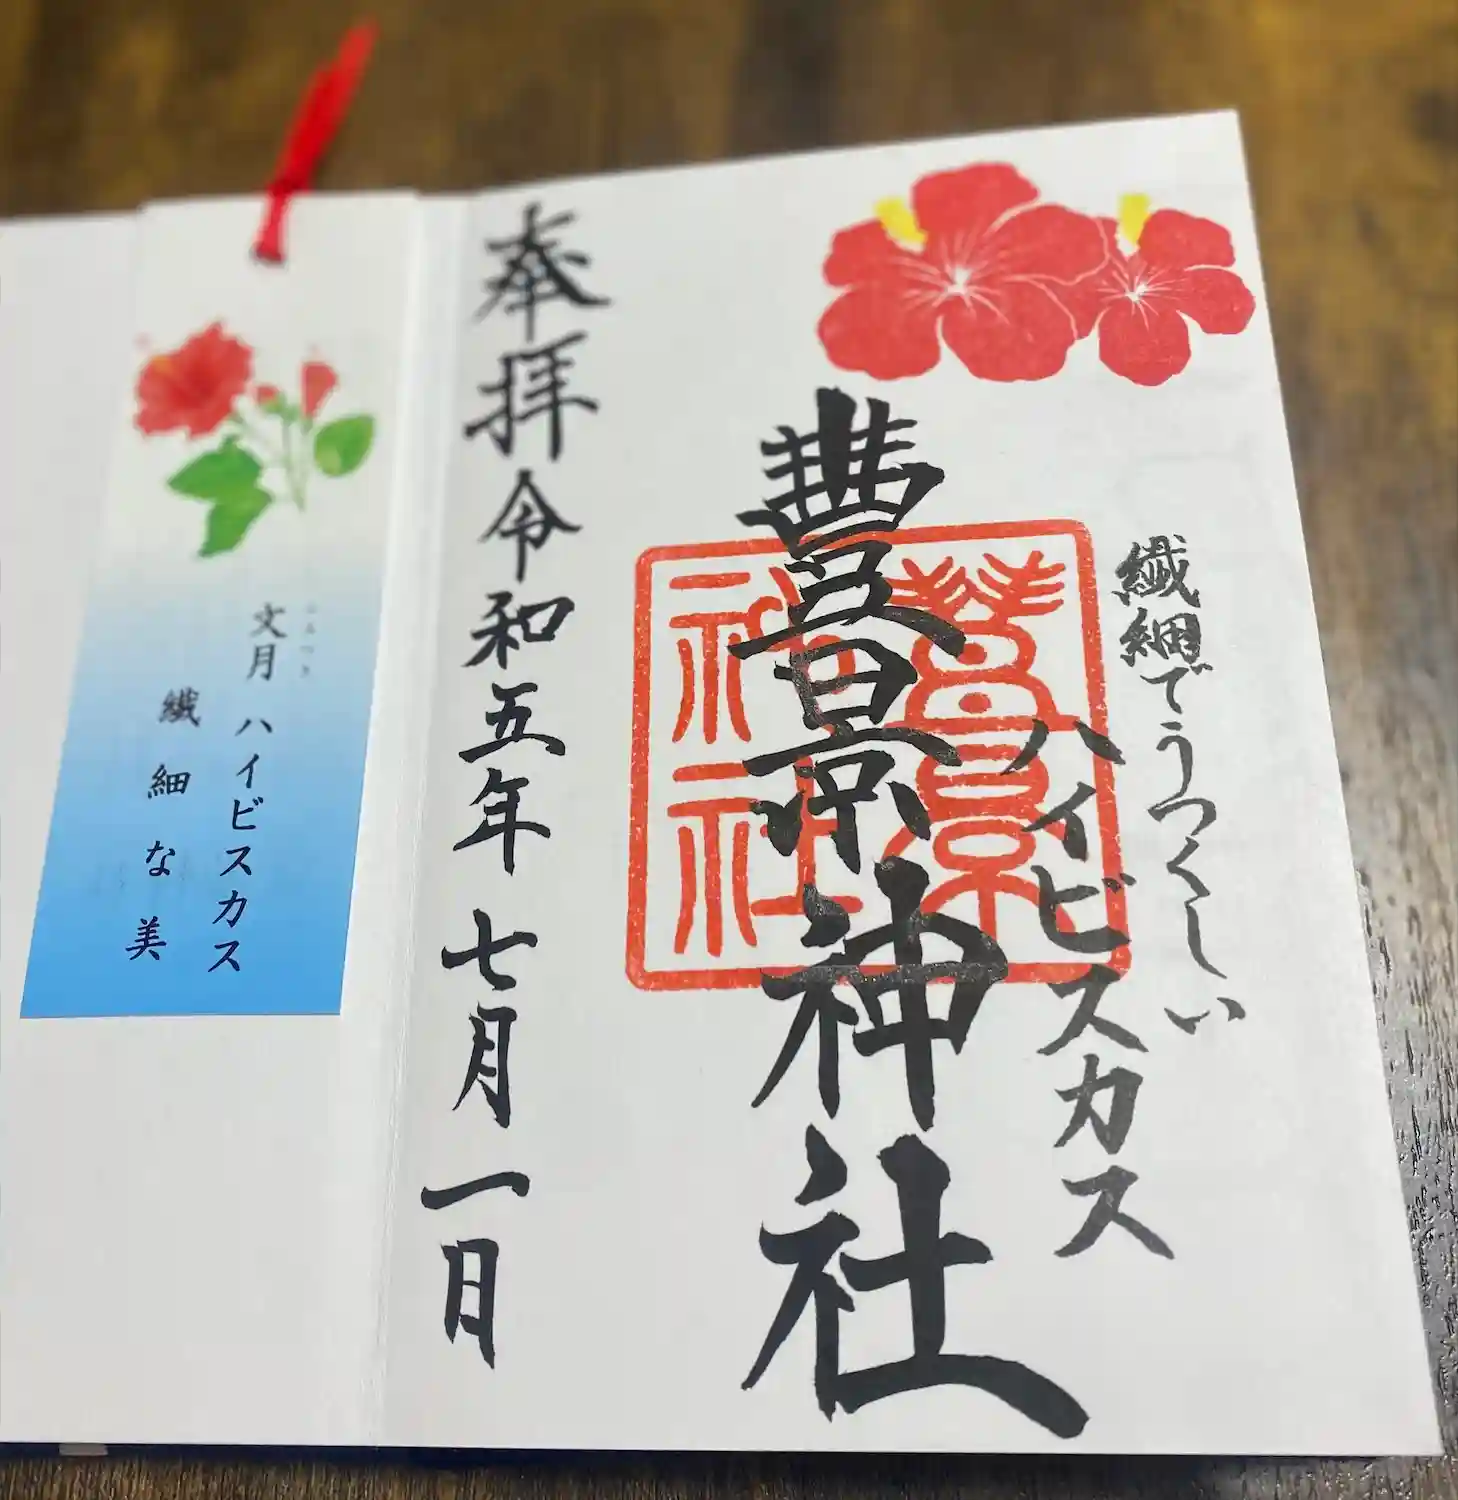 繊細でうつくしい
ハイビスカス
豊景神社
豊景神社
奉拝 令和五年 七月 一日
ふみづき
文月 ハイビスカス
繊細な美